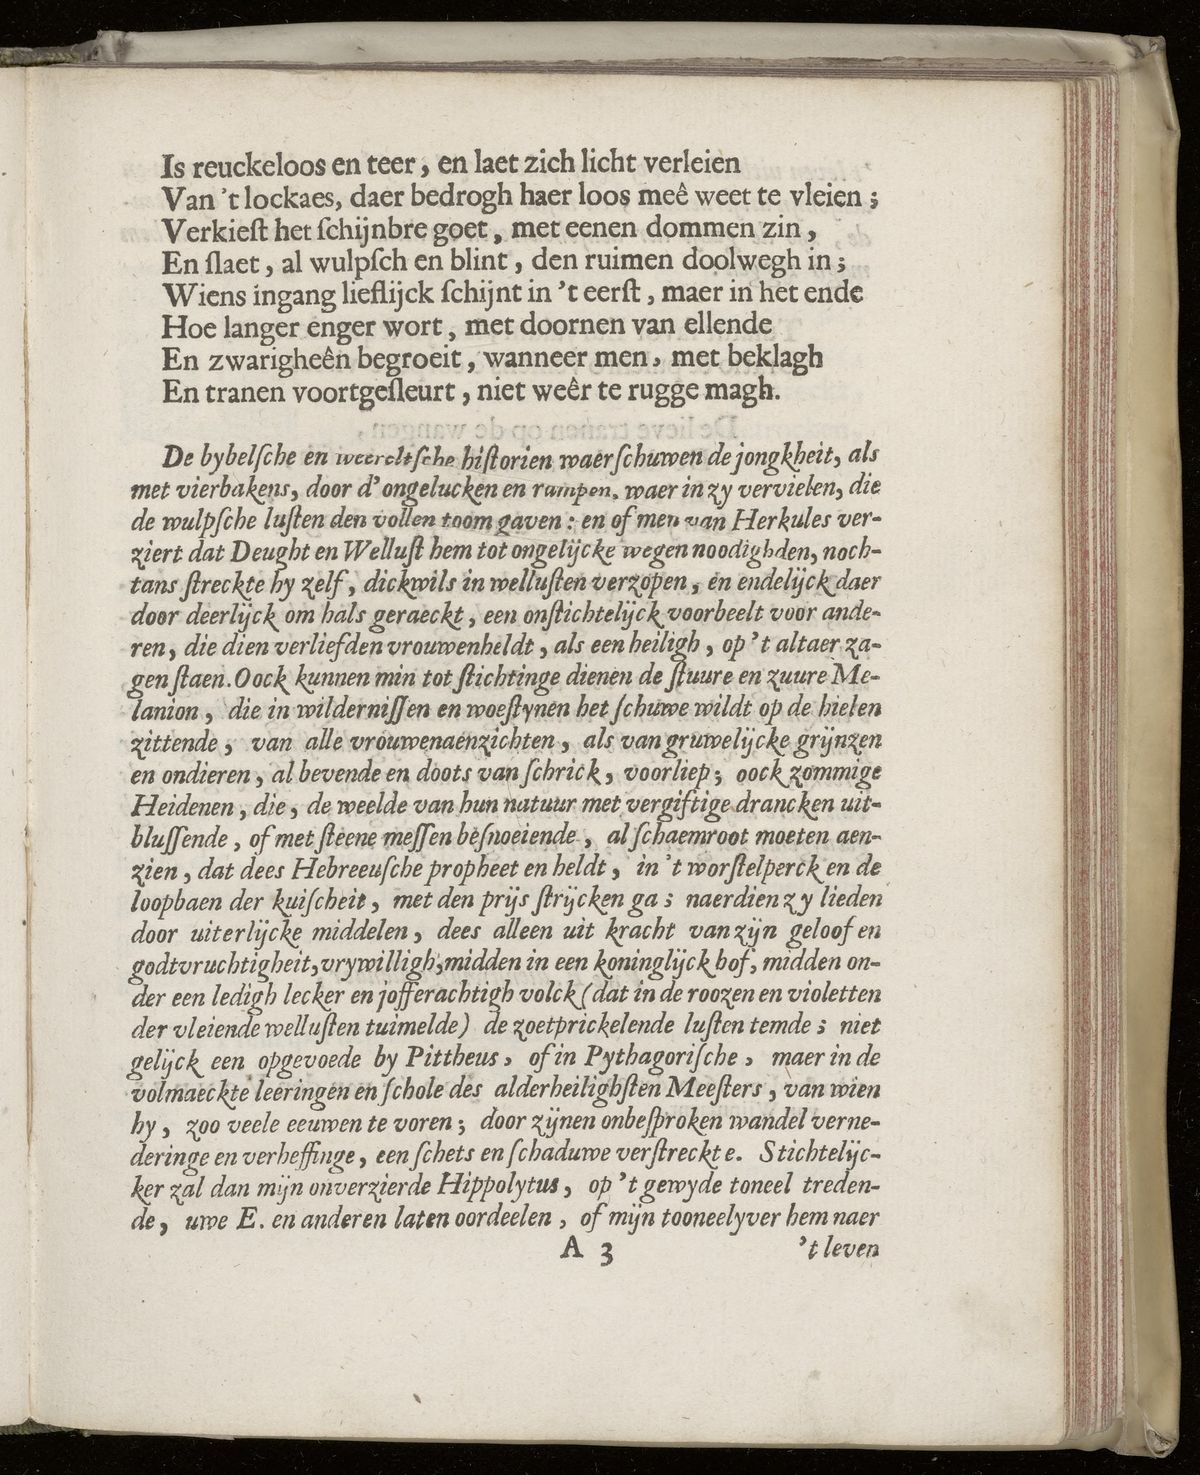 Is reuckeloos en teer, en laet zich licht verleien
Van 't lockaes, daer bedrogh haer loos meê weet te vleien;
Verkieſt het ſchijnbre goet, met eenen dommen zin,
En ſlaet, al wulpſch en blint, den ruimen doolwegh in;
Wiens ingang lieflijck ſchijnt in 't eerſt, maer in het ende
Hoe langer enger wort, met doornen van ellende
En zwarigheên begroeit, wanneer men, met beklagh
En tranen voortgeſleurt, niet weêr te rugge magh.
De bybelſche en weereltſche hiſtorien waerſchuwen de jongkheit, als
met vierbakens, door d'ongelucken en rampen, waer in zy vervielen, die
de wulpſche luſten den vollen toom gaven: en of men van Herkules ver-
ziert dat Deught en Welluſt hem tot ongelijcke wegen noodighden, noch-
tans ſtreckte hy zelf, dickwils in welluſten verzopen, en endelijck daer
door deerlijck om hals geraeckt, een onſtichtelijck voorbeelt voor ande-
ren, die dien verliefden vrouwenheldt, als een heiligh, op 't altaer za-
gen ſtaen. Oock kunnen min tot ſtichtinge dienen de ſtuure en zuure Me-
lanion, die in wilderniſſen en woeſtynen het ſchuwe wildt op de hielen
zittende, van alle vrouwenaenzichten, als van gruwelijcke grijnzen
en ondieren, al bevende en doots van ſchrick, voorliep; oock zommige
Heidenen, die, de weelde van hun natuur met vergiftige drancken uit-
bluſſende, of met ſteene meſſen beſnoeiende, al ſchaemroot moeten aen-
zien, dat dees Hebreeuſche propheet en heldt, in 't worſtelperck en de
loopbaen der kuiſcheit, met den prijs ſtrijcken ga; naerdien zy lieden
door uiterlijcke middelen, dees alleen uit kracht van zijn geloof en
godtvruchtigheit, vrywilligh, midden in een koninglijck hof, midden on-
der een ledigh lecker en jofferachtigh volck (dat in de roozen en violetten
der vleiende welluſten tuimelde) de zoetprickelende luſten temde; niet
gelijck een opgevoede by Pittheus, of in Pythagoriſche, maer in de
volmaeckte leeringen en ſchole des alderheilighſten Meeſters, van wien
hy, zoo veele eeuwen te voren; door zijnen onbeſproken wandel verne-
deringe en verheffinge, een ſchets en ſchaduwe verſtreckte. Stichtelijc-
ker zal dan mijn onverzierde Hippolytus, op 't gewyde toneel treden-
de, uwe E. en anderen laten oordeelen, of mijn tooneelyver hem naer
A 3 't leven